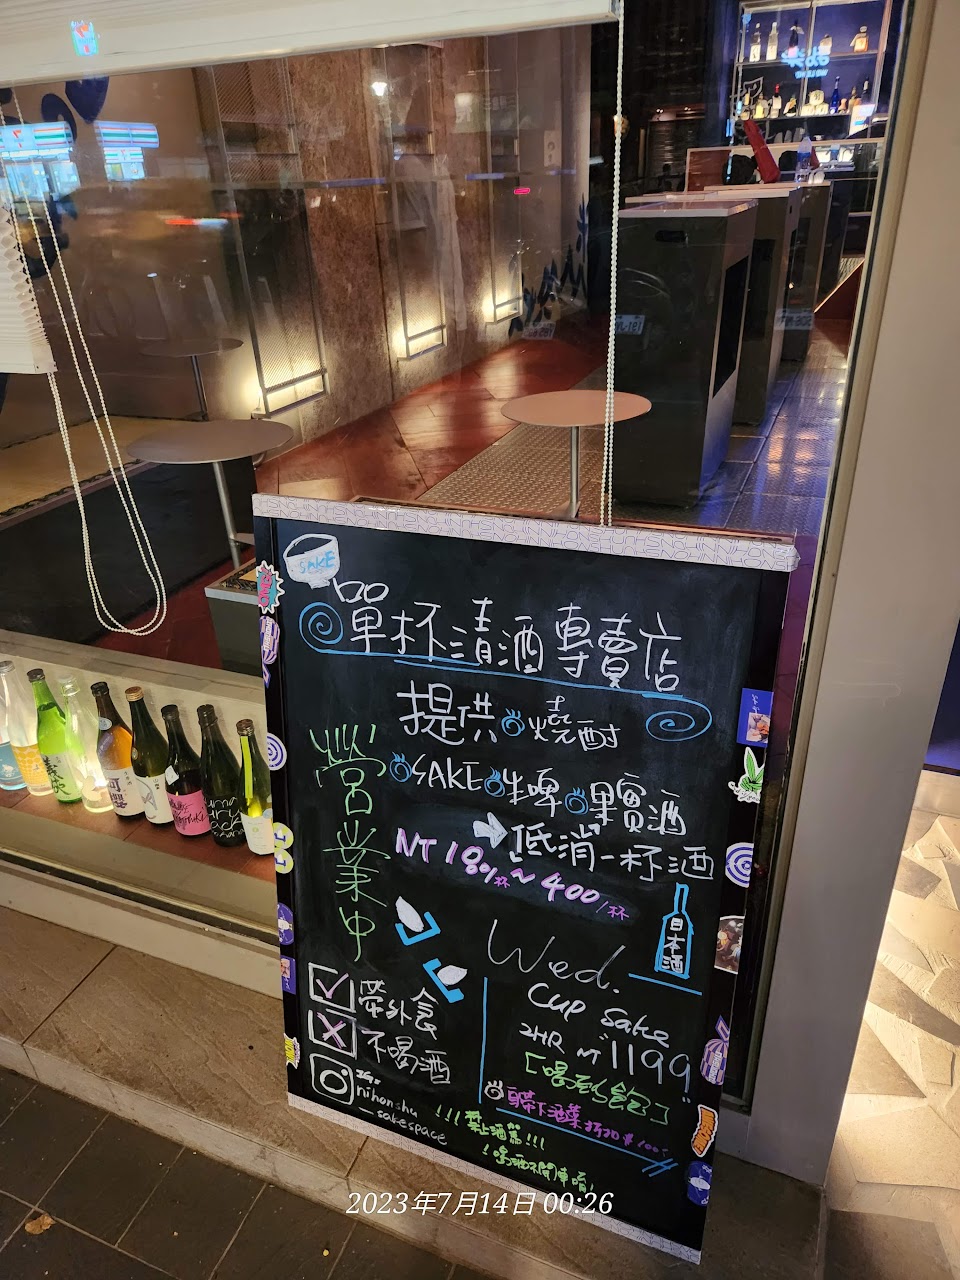 SAKE
單杯清酒專賣店
提供 燒酎
SAKE 生啤 果實酒
低消一杯酒
NT 180/杯 ~ 400/杯
營業中
日本酒
帶外食
不喝酒
nihonshu
_sakespace
Wed.
Cup Sake
2HR NT "1199"
[喝到飽]
自帶下酒菜折扣$100
!!!禁止酒駕!!!
!喝酒不開車唷!
2023年7月14日 00:26